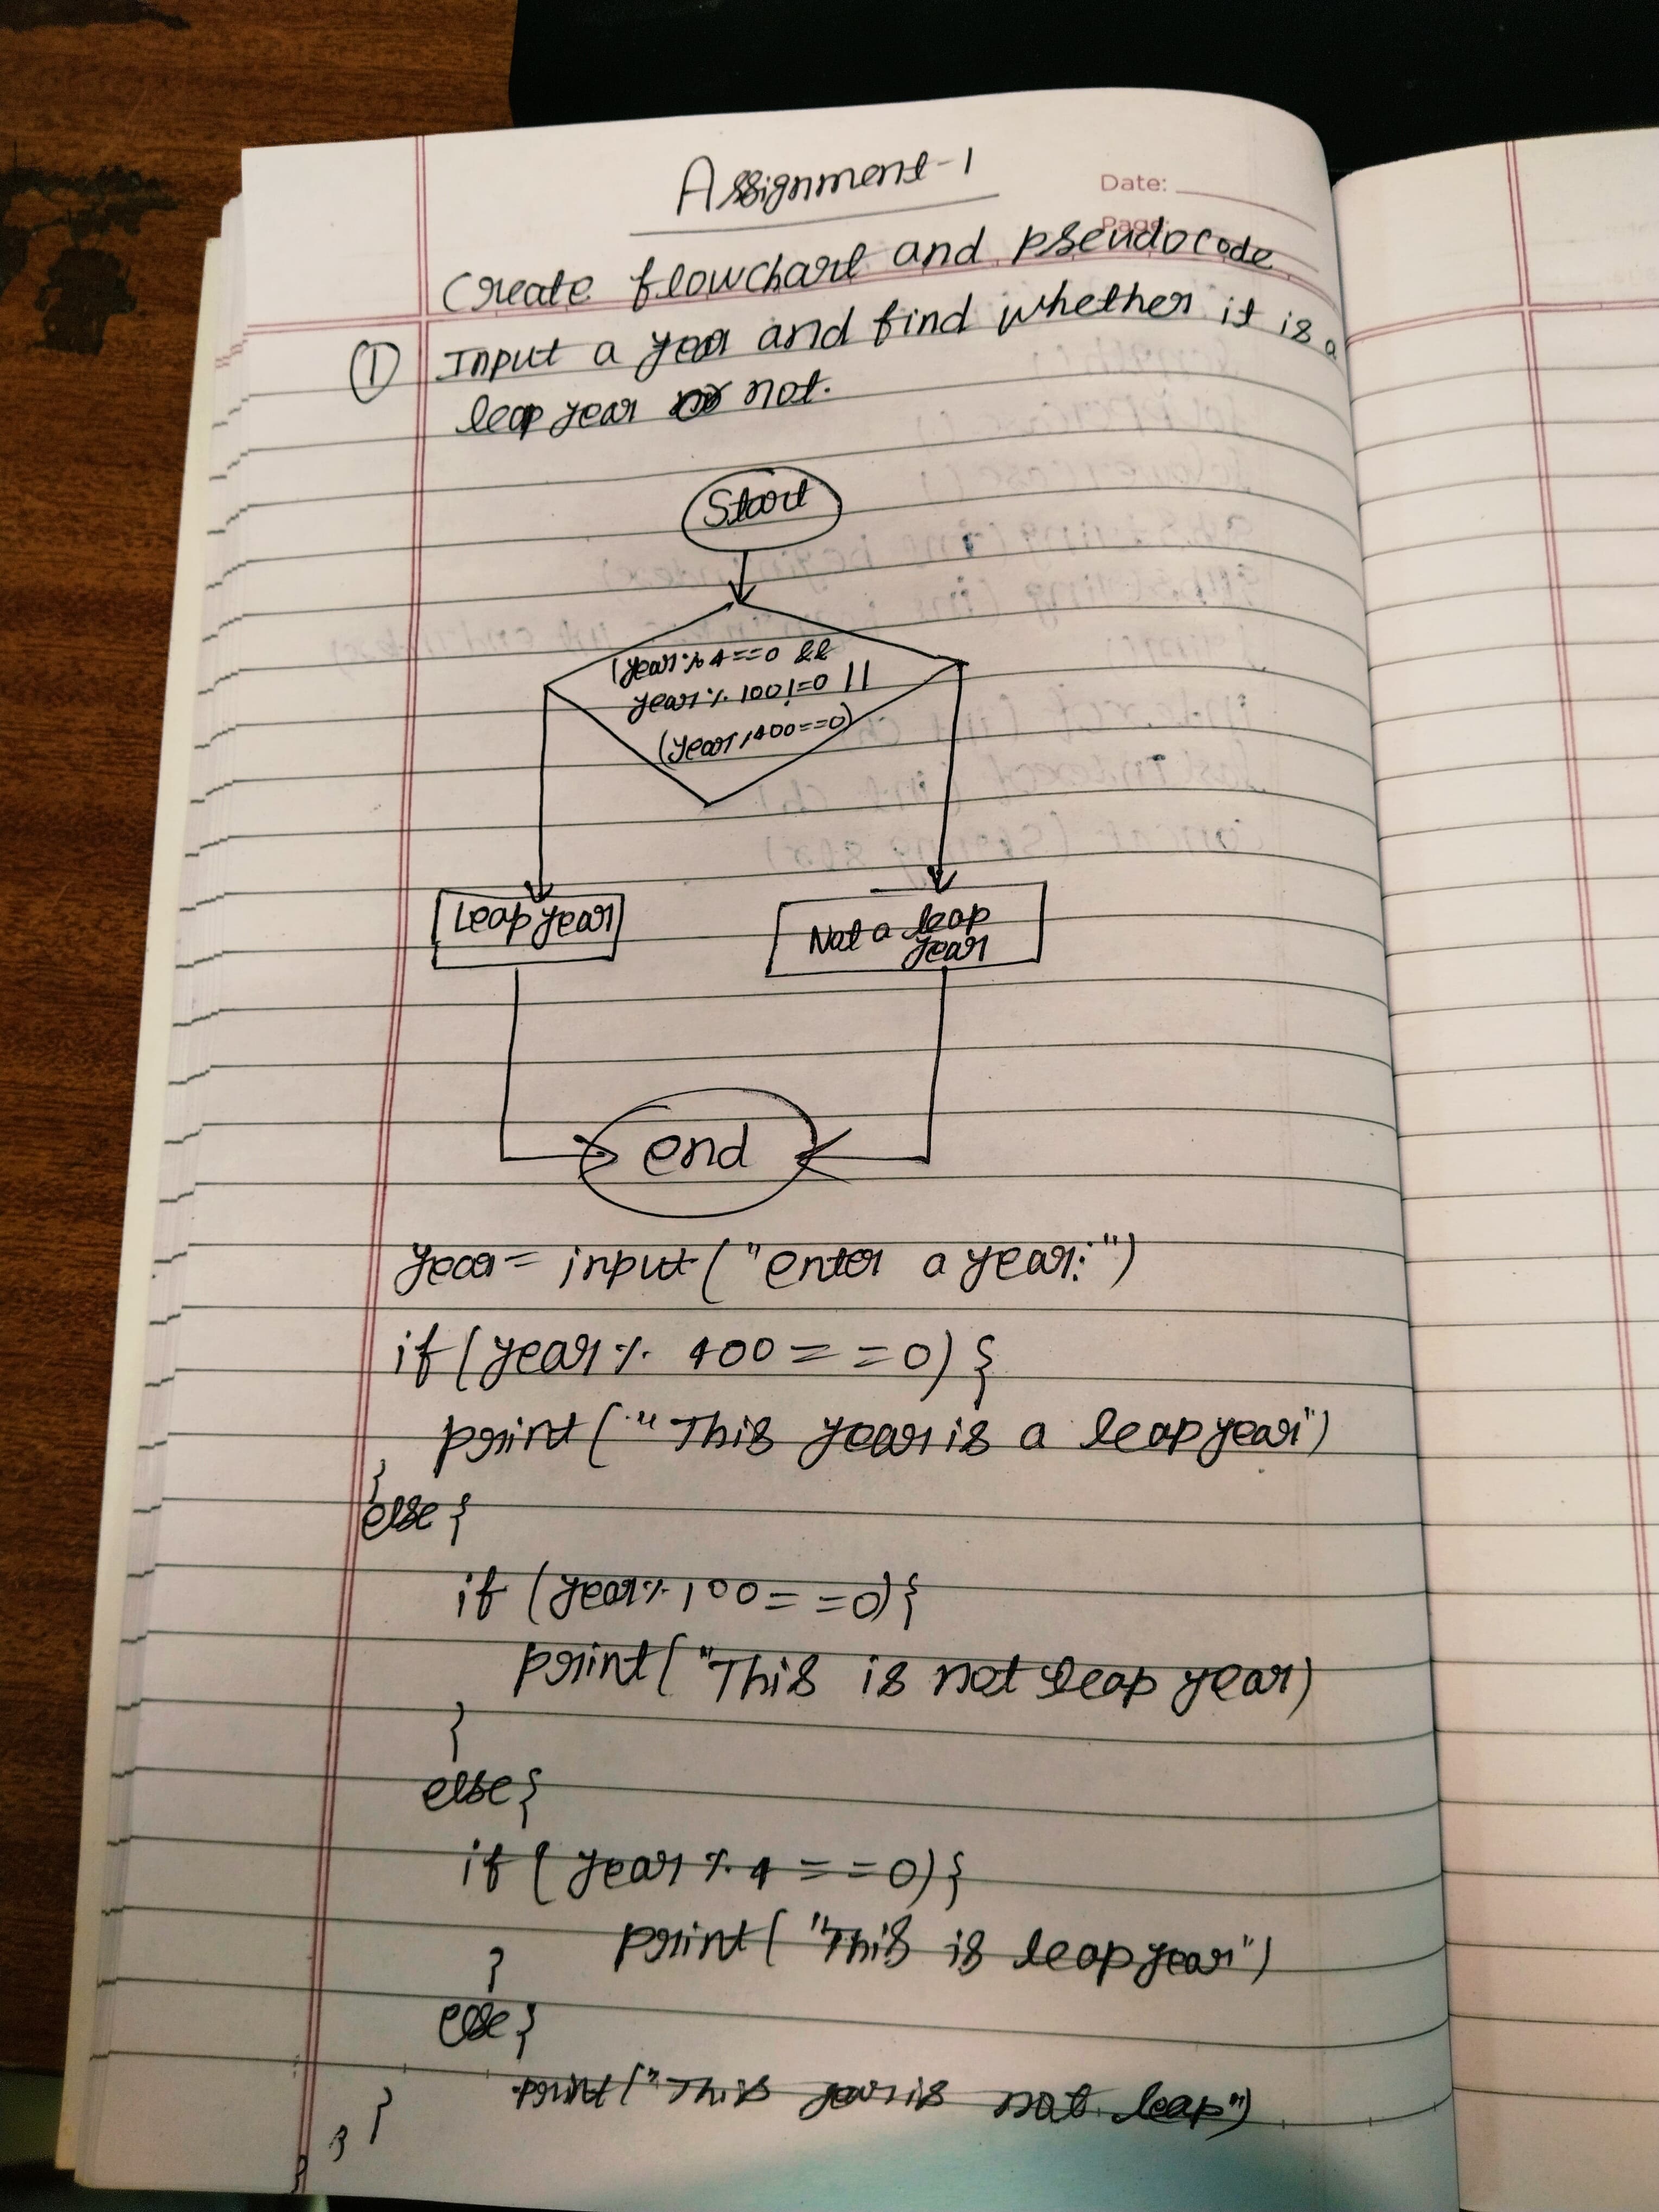 Assignment-1
Date:
Page:
Create flowchart and pseudocode
① Input a year and find whether it is a
leap year or not.
Start
(year % 4 == 0 &&
year % 100 != 0 ||
(year % 400 == 0)
Leap year
Not a leap
year
end
year = input ("enter a year:")
if (year % 400 == 0) {
print ("This year is a leap year")
}
else {
if (year % 100 == 0) {
print ("This is not leap year)
}
else {
if (year % 4 == 0) {
print ("This is leap year")
}
else {
print ("This year is not leap")
}
}
}